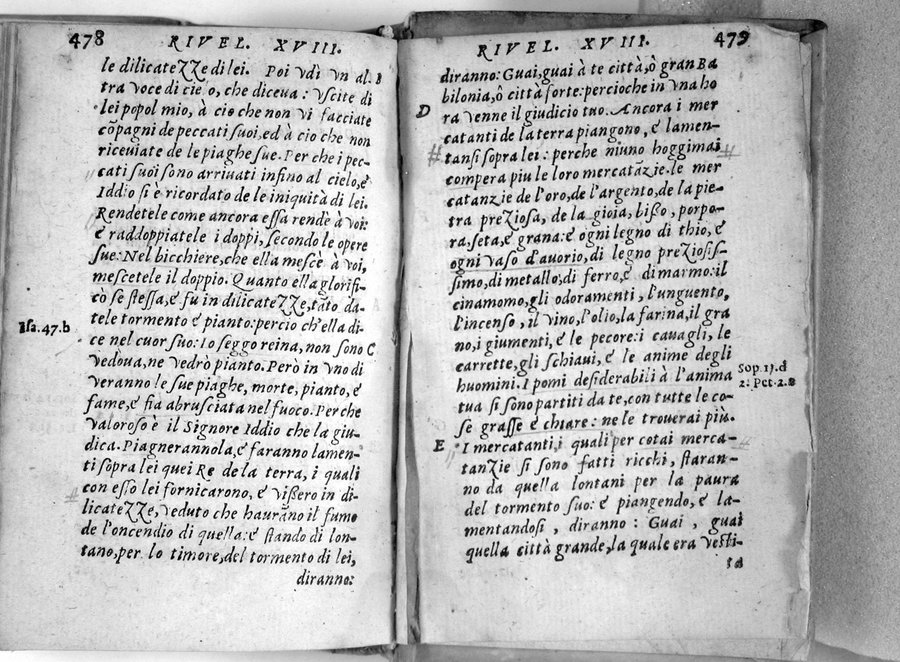 478
RIVEL. XVIII.
le dilicateZZe di lei. Poi vdì vn al-
tra voce di cielo, che diceua: Vscite di
lei popol mio, à cio che non vi facciate
cõpagni de peccati suoi, ed à cio che non
riceuiate de le piaghe sue. Per che i pec-
cati suoi sono arriuati infino al cielo, e
Iddio si è ricordato de le iniquità di lei.
Rendetele come ancora essa rendè à voi:
e raddoppiatele i doppi, secondo le opere
sue: Nel bicchiere, che ella mescè à voi,
mescetele il doppio. Quanto ella glorifi-
cò se stessa, e fu in dilicateZZe, tãto da-
tele tormento e pianto: percio ch'ella di-
Isa. 47. b
ce nel cuor suo: Io seggo reina, non sono
C
vedoua, ne vedrò pianto. Però in vno di
veranno le sue piaghe, morte, pianto, e
fame, e fia abrusciata nel fuoco. Perche
valoroso è il Signore Iddio che la giu-
dica. Piagnerannola, e faranno lamen-
ti sopra lei quei Re de la terra, i quali
con esso lei fornicarono, e vissero in di-
licateZZe, veduto che haurãno il fumo
de l'oncendio di quella: e stando di lon-
tano, per lo timore, del tormento di lei,
diranno:
RIVEL. XVIII.
479
diranno: Guai, guai à te città, ô gran Ba
bilonia, ô città forte: percioche in vna ho
D
ra venne il giudicio tuo. Ancora i mer
catanti de la terra piangono, e lamen-
tansi sopra lei: perche niuno hoggimai
compera piu le loro mercatãzie. le mer
catanzie de l'oro, de l'argento, de la pie-
tra preZiosa, de la gioia, bisso, porpo-
ra, seta, e grana: e ogni legno di thio, e
ogni vaso d'auorio, di legno preZiosis-
simo, di metallo, di ferro, e di marmo: il
cinamomo, gli odoramenti, l'unguento,
l'incenso, il vino, l'olio, la farina, il gra
no, i giumenti, e le pecore: i cauagli, le
carrette, gli schiaui, e le anime degli
huomini. I pomi desiderabili à l'anima
Sop. 13. d
2. Pet. 2. 8
tua si sono partiti da te, con tutte le co-
se grasse e chiare: ne le trouerai più.
E
I mercatanti, i quali per cotai merca-
tanZie si sono fatti ricchi, staran-
no da quella lontani per la paura
del tormento suo: e piangendo, e la-
mentandosi, diranno: Guai, guai
quella città grande, la quale era vesti-
ta